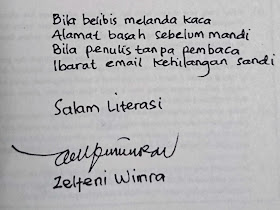 Bila belibis melanda kaca
Alamat basah sebelum mandi
Bila penulis tanpa pembaca
Ibarat email kehilangan sandi
Salam Literasi
Zelfeni Wimra